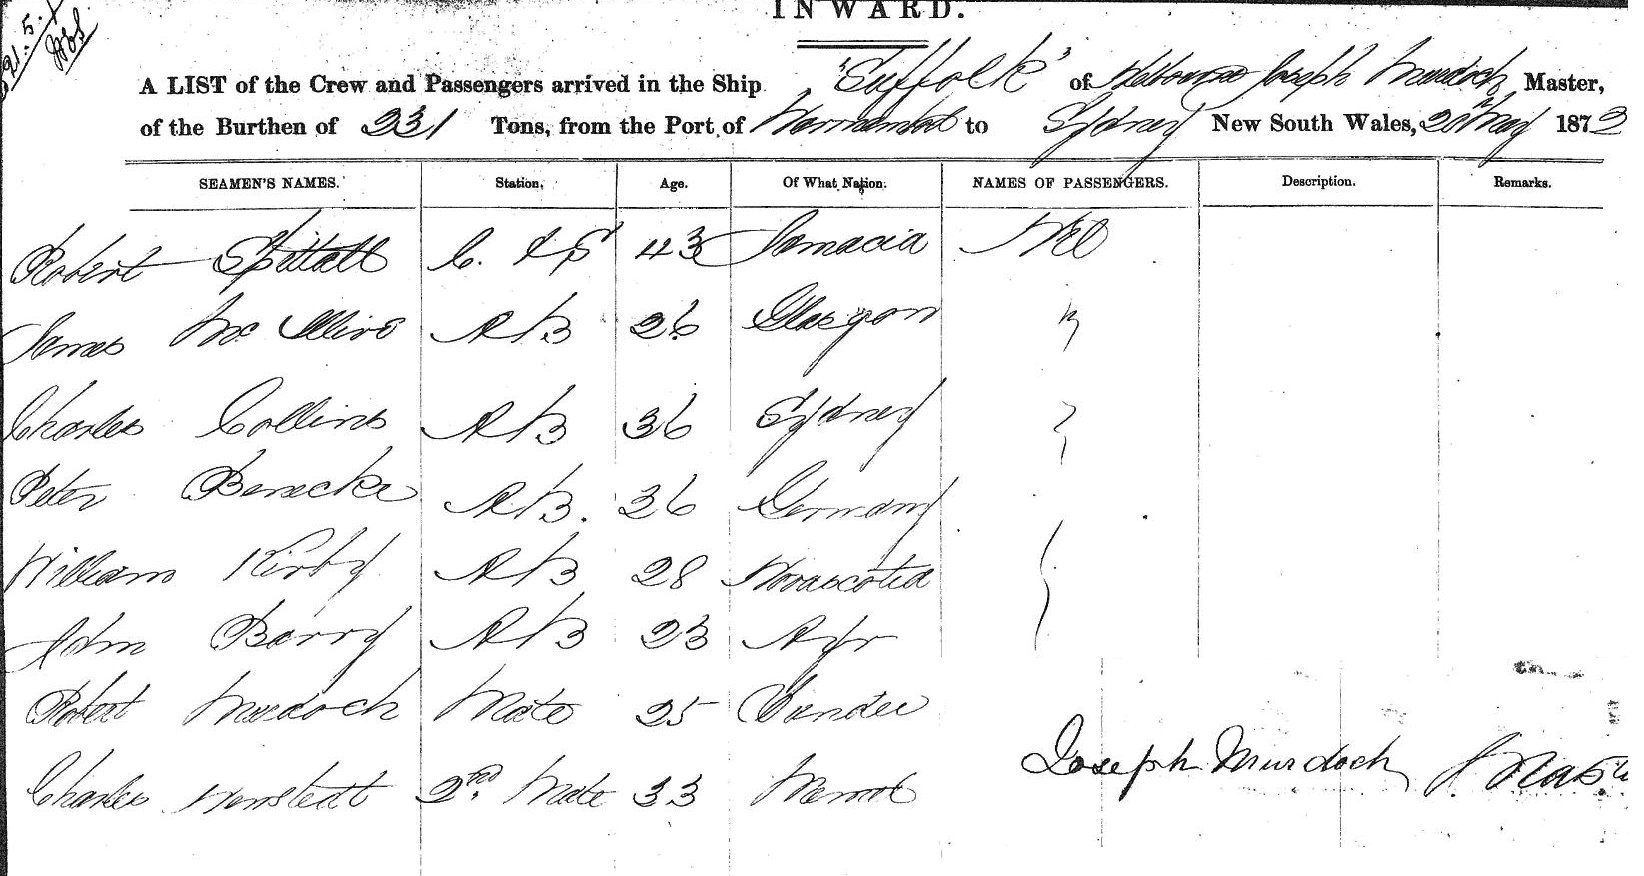 21.5.
INWARD.
A LIST of the Crew and Passengers arrived in the Ship "Suffolk" of Melbourne Joseph Murdoch Master,
of the Burthen of 231 Tons, from the Port of to Sydney New South Wales, 20th May 1872
SEAMEN'S NAMES. Station. Age. Of What Nation. NAMES OF PASSENGERS. Description. Remarks.
Robert C. & S 43 Jamacia Nil
James Mc AB 26 Glasgow "
Charles Collins AB 36 Sydney
Peter Benecke AB. 36 Germany
William Kirby AB 28 Novascotia
John Barry AB 23 Ayr
Robert Murdoch Mate 25 Dundee
Charles 2nd Mate 33
Joseph Murdoch